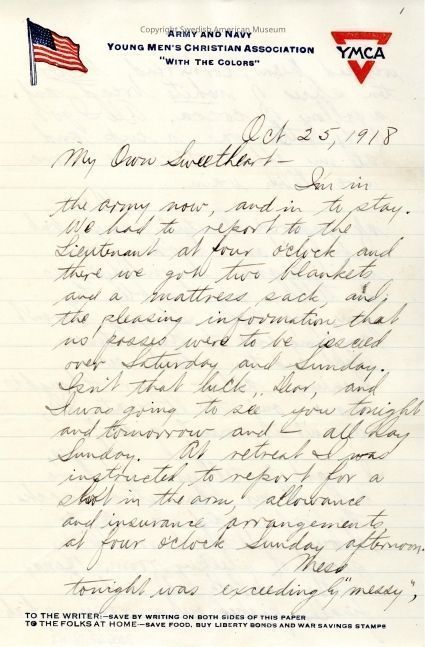 1
Copyright Swedish American Museum
ARMY AND NAVY
YOUNG MEN'S CHRISTIAN ASSOCIATION
"WITH THE COLORS"
YMCA
Oct. 25, 1918
My Own Sweetheart –
I'm in
the army now, and in to stay.
We had to report to the
Lieutenant at four o'clock and
there we got two blankets
and a mattress sack, and,
the pleasing information that
no passes were to be issued
over Saturday and Sunday.
Isn't that luck, Dear, and
I was going to see you tonight
and tomorrow and – all day
Sunday. At retreat I was
instructed to report for a
shot in the arm, allowance
and insurance arrangements
at four o'clock Sunday afternoon.
Mess
tonight was exceedingly "messy",
TO THE WRITER:—SAVE BY WRITING ON BOTH SIDES OF THIS PAPER
TO THE FOLKS AT HOME:—SAVE FOOD, BUY LIBERTY BONDS AND WAR SAVINGS STAMPS